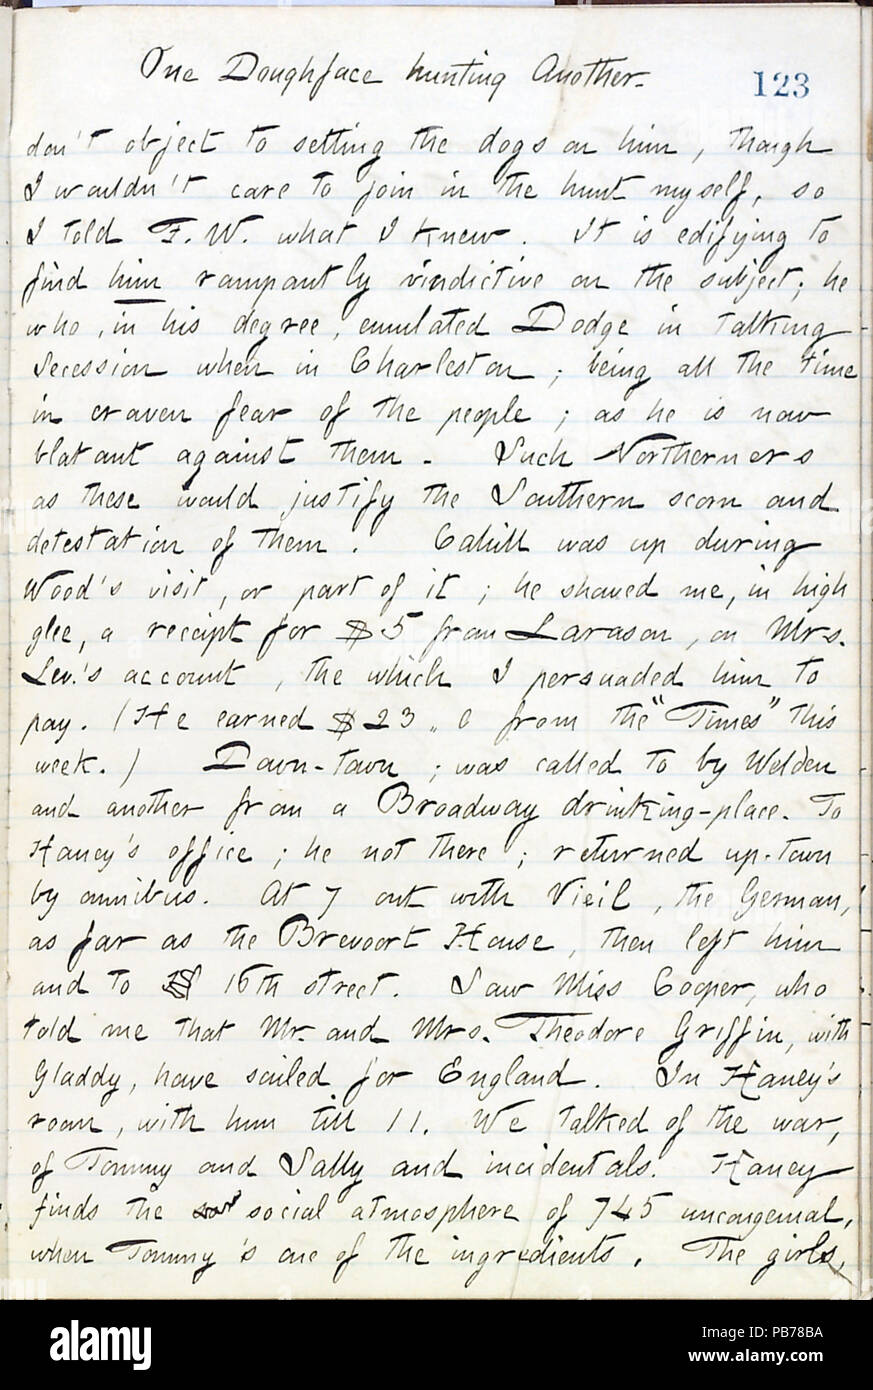 One Doughface hunting Another.
123
don't object to setting the dogs on him, though
I wouldn't care to join in the hunt myself, so
I told F. W. what I knew. It is edifying to
find him rampantly vindictive on the subject; he
who, in his degree, emulated Dodge in talking
Secession when in Charleston; being all the time
in craven fear of the people; as he is now
blatant against them. Such Northerners
as these would justify the Southern scorn and
detestation of them. Cahill was up during
Wood's visit, or part of it; he showed me, in high
glee, a receipt for $5 from Larason, on Mrs.
Lev.'s account, the which I persuaded him to
pay. (He earned $23 „ 0 from the "Times" this
week.) Down-town; was called to by Welden
and another from a Broadway drinking-place. To
Haney's office; he not there; returned up-town
by omnibus. At 7 out with Vieil, the German,
as far as the Brevoort House, then left him
and to 16th street. Saw Miss Cooper, who
told me that Mr. and Mrs. Theodore Griffin, with
Gladdy, have sailed for England. In Haney's
room, with him till 11. We talked of the war,
of Tommy and Sally and incidentals. Haney
finds the social atmosphere of 745 uncongenial,
when Tommy's one of the ingredients. The girls,
alamy
Image ID: PB78BA
www.alamy.com